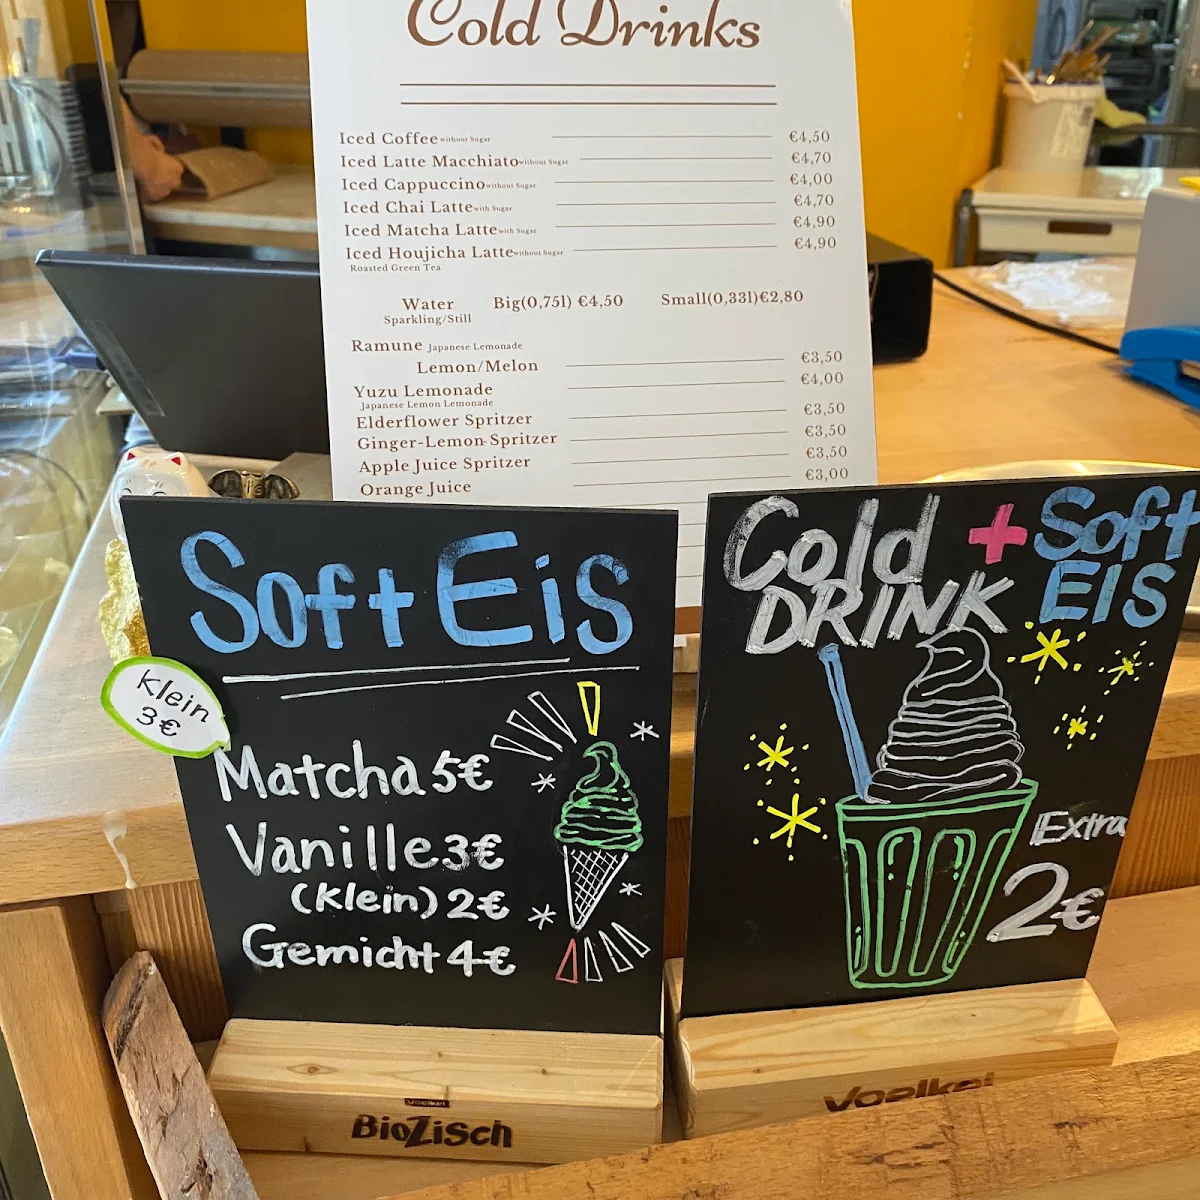 Cold Drinks
Iced Coffee without Sugar €4,50
Iced Latte Macchiato without Sugar €4,70
Iced Cappuccino without Sugar €4,00
Iced Chai Latte with Sugar €4,70
Iced Matcha Latte with Sugar €4,90
Iced Houjicha Latte without Sugar €4,90
Roasted Green Tea
Water Big(0,75l) €4,50 Small(0,33l)€2,80
Sparkling/Still
Ramune Japanese Lemonade
Lemon/Melon €3,50
Yuzu Lemonade €4,00
Japanese Lemon Lemonade
Elderflower Spritzer €3,50
Ginger-Lemon Spritzer €3,50
Apple Juice Spritzer €3,50
Orange Juice €3,00
Soft Eis
Klein
3€
Matcha 5€
Vanille 3€
(Klein) 2€
Gemicht 4€
Voelkel
BioZisch
Cold + Soft
DRINK EIS
Extra
2€
Voelkel